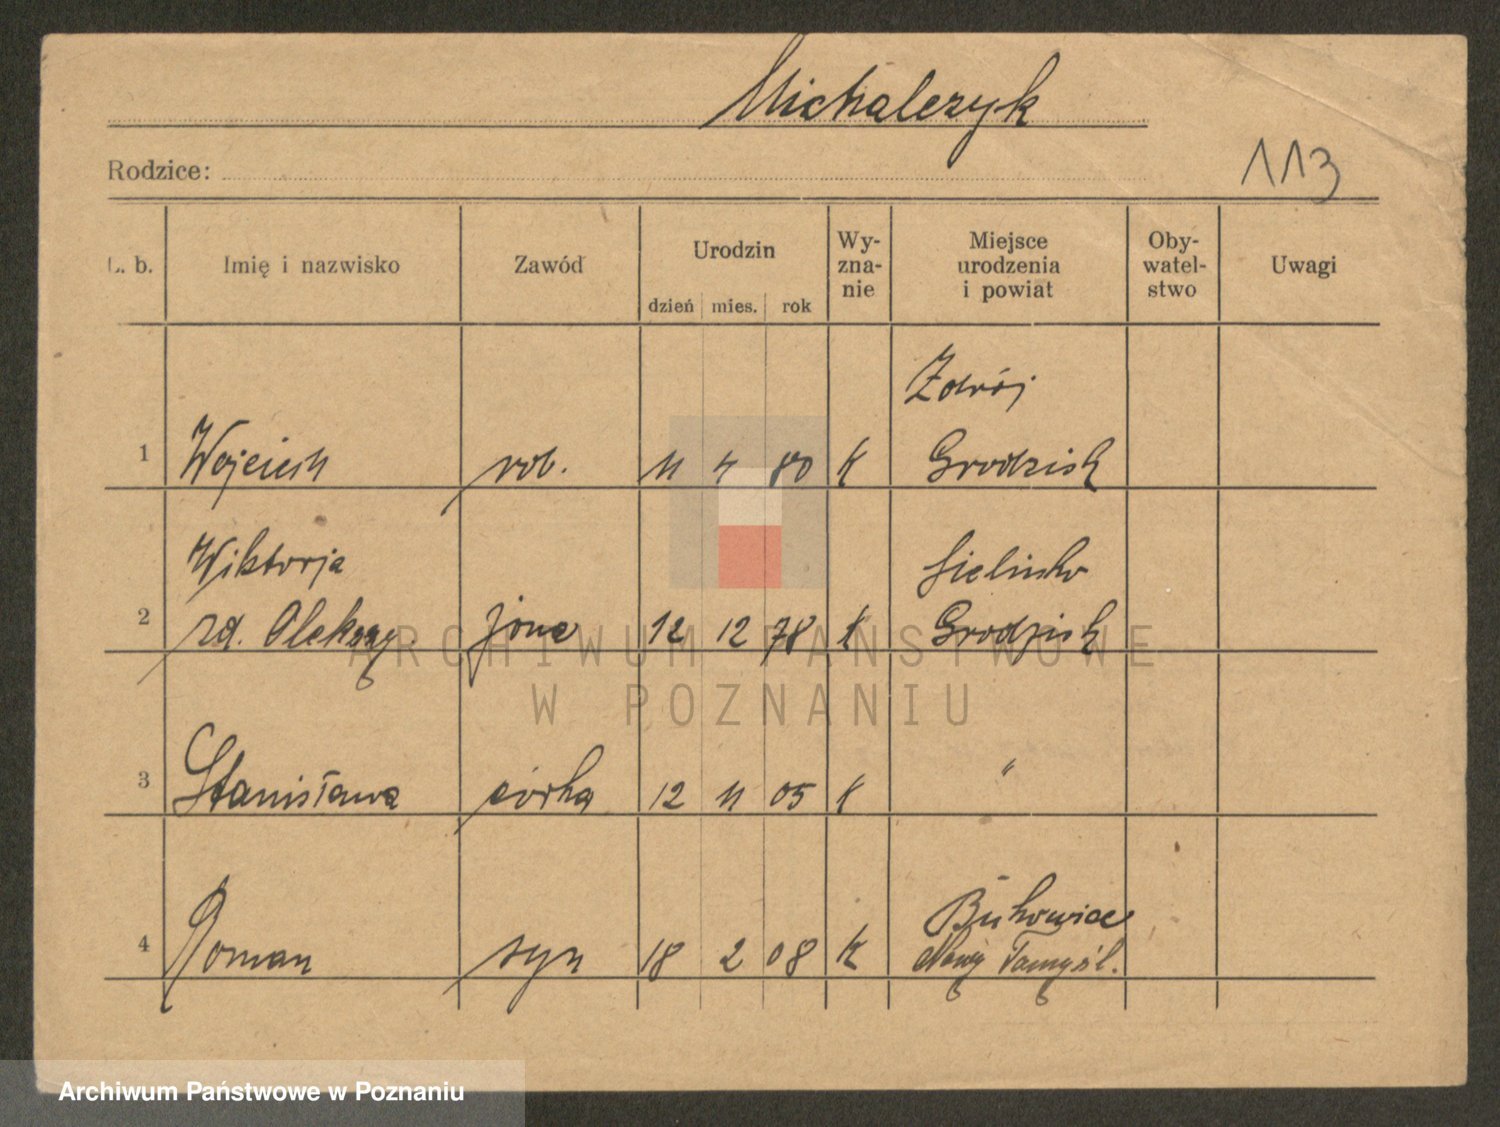 Michalczyk
Rodzice:
113
L. b. Imię i nazwisko Zawód Urodzin dzień mies. rok Wy-zna-nie Miejsce urodzenia i powiat Oby-watel-stwo Uwagi
Zdrój
1 Wojciech rob. 11 4 80 K Grodzisk
Wiktorja Sielinko
2 rd. Olekszy żona 12 12 78 K Grodzisk
3 Stanisława córka 12 11 05 K "
Bukowiec
4 Roman syn 18 2 08 K Nowy Tomyśl.
ARCHIWUM PAŃSTWOWE
W POZNANIU
Archiwum Państwowe w Poznaniu